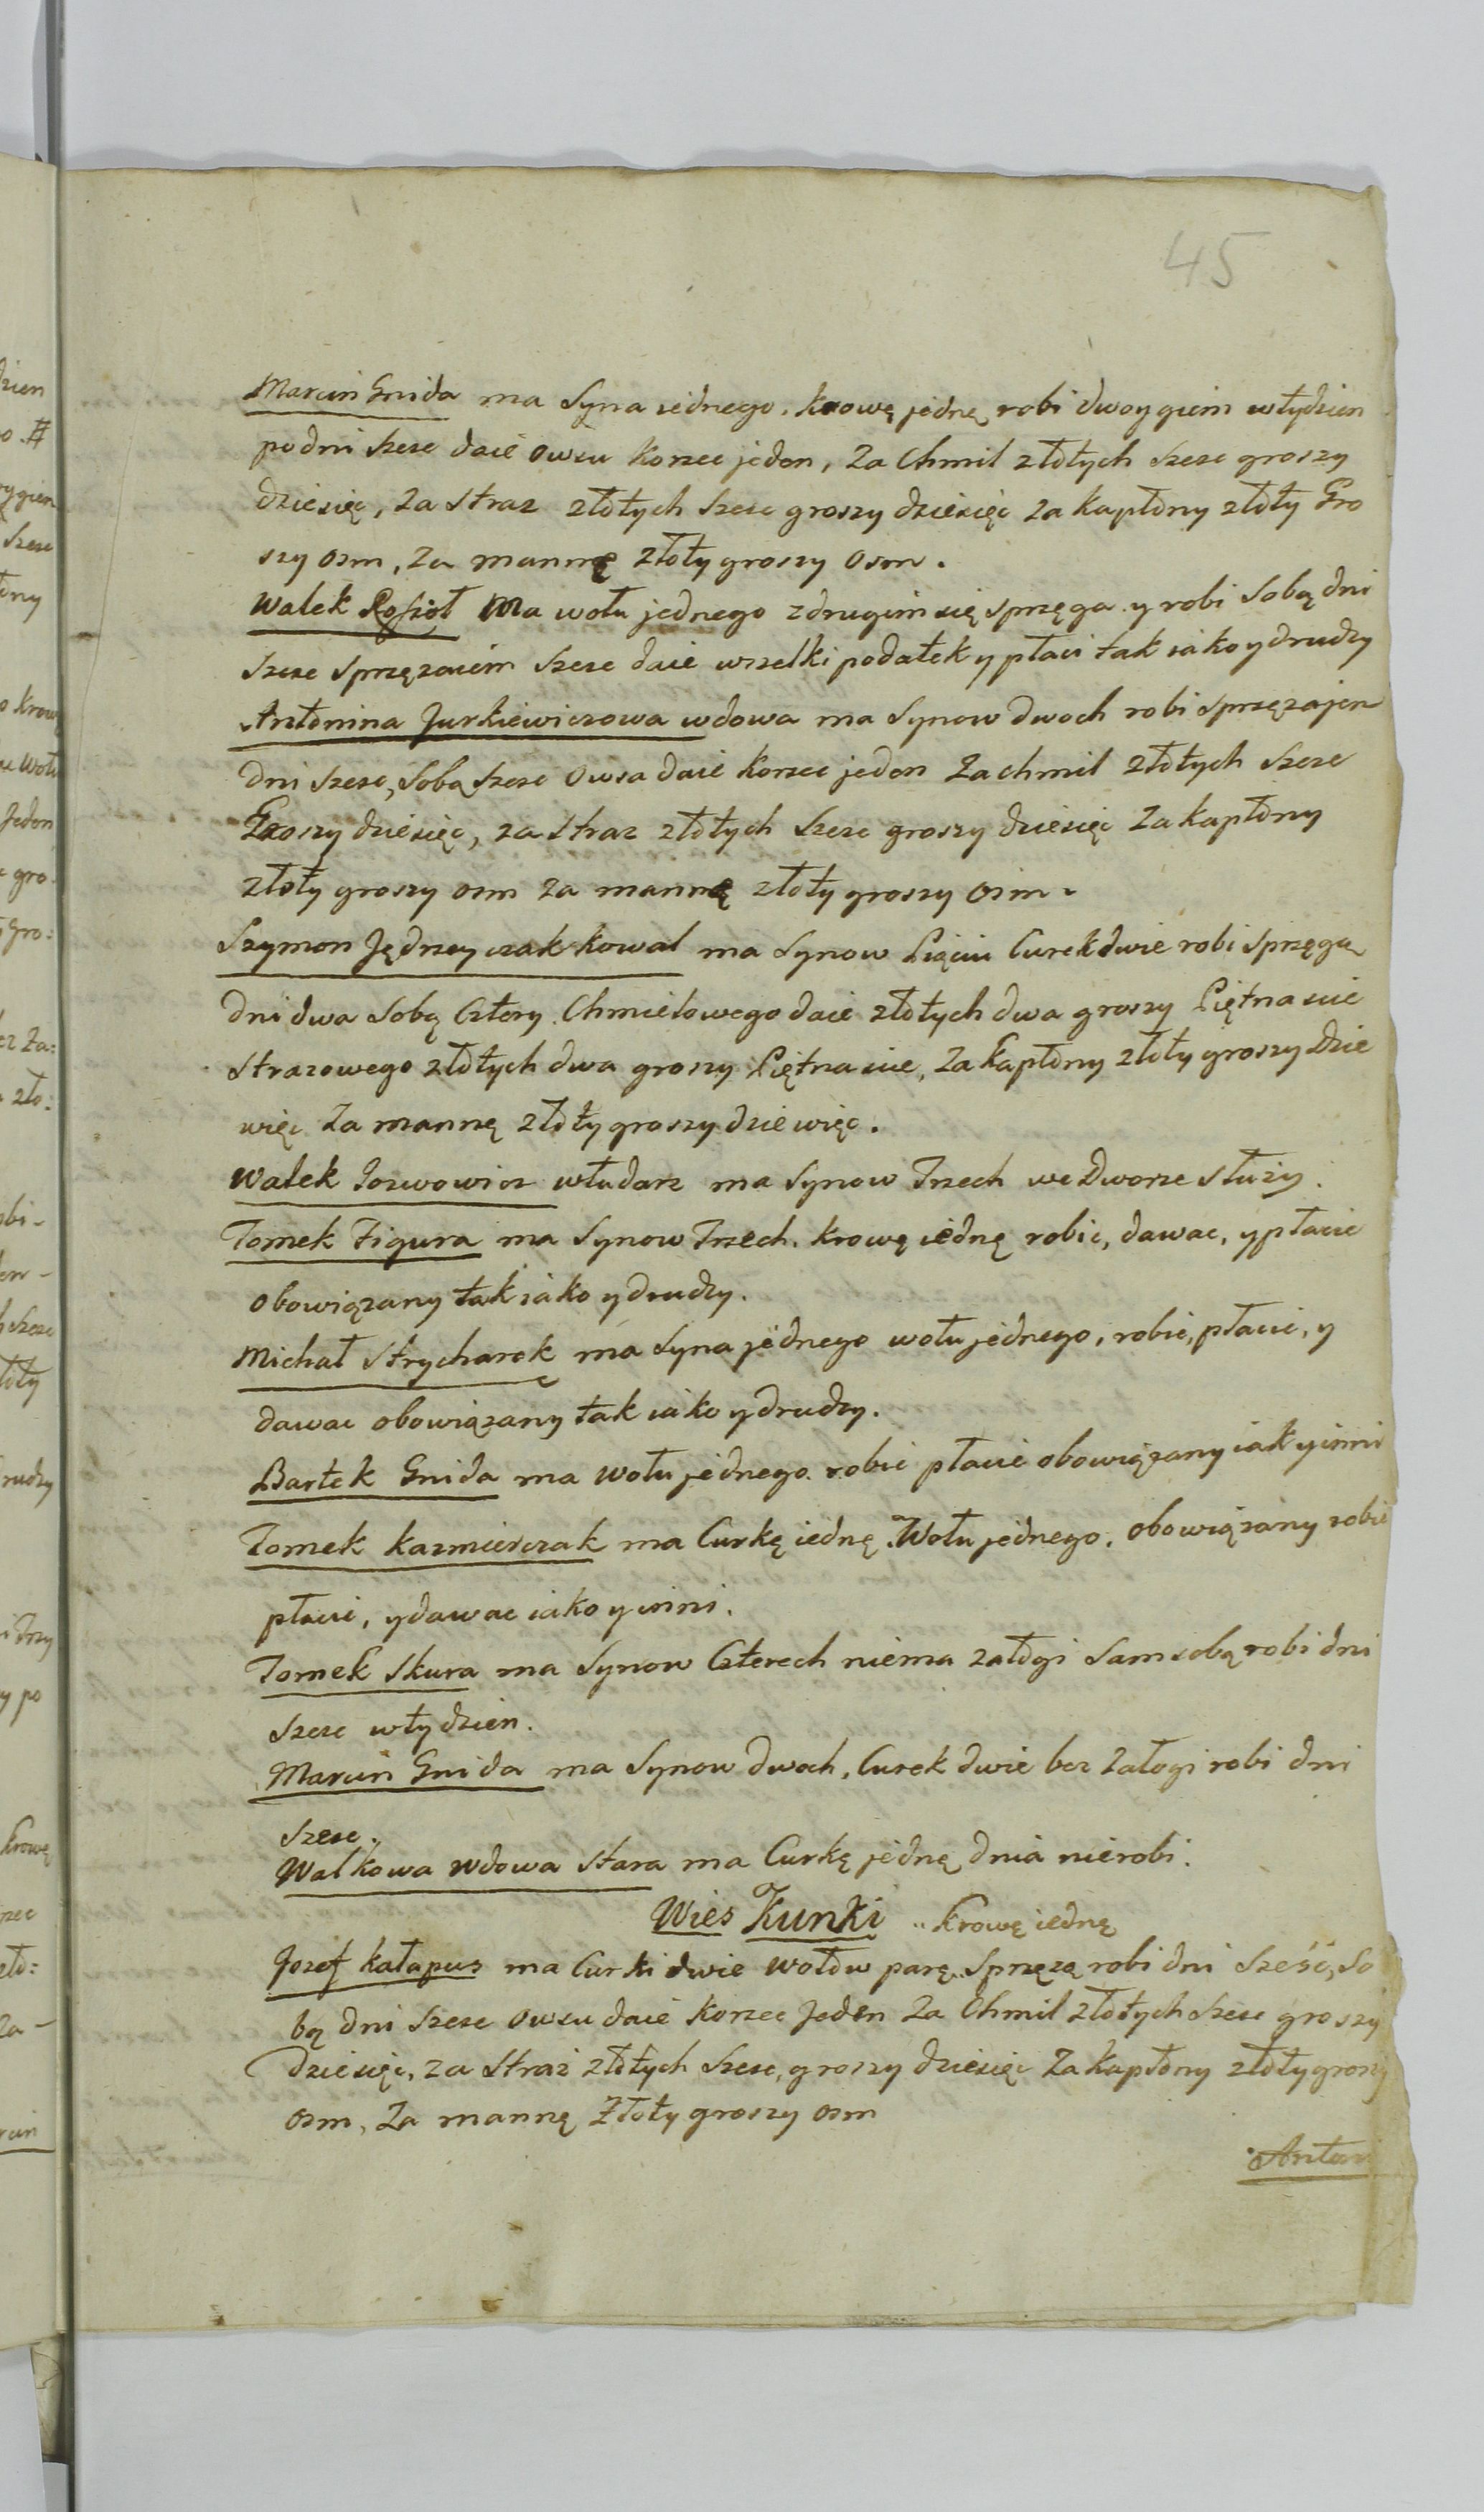 45
Marcin Gnida ma Syna iednego. Krowę jednę robi dwoygiem wtydzien
po dni szesc daie owsu korzec jeden, Za Chmil złotych szesc groszy
dziesięc, za straz złotych szesc groszy dziesięc za kapłony złoty Gro
szy osm, Za mannę złoty groszy osm.
Walek Rosioł Ma wołu jednego z drugim się sprzęga y robi Sobą dni
szesc sprzęzaiem szesc daie wszelki podatek y płaci tak iako y drudzy
Antonina Jurkiewiczowa wdowa ma Synow dwoch robi sprzęzajem
dni szesc, Sobą szesc Owsa daie korzec jeden Za chmil złotych szesc
Groszy dziesięc, za straz złotych szesc groszy dziesięc Za kapłony
złoty groszy osm za mannę złoty groszy osm.
Szymon Jędrzeyczak kowal ma Synow Pięciu Curek dwie robi sprzęgą
dni dwa Sobą Cztery. Chmielowego daie złotych dwa groszy Piętnascie
strazowego złotych dwa groszy Piętnascie, Za kapłony złoty groszy Dzie
więc Za mannę złoty groszy dziewięc.
Walek Jozwowicz włudarz ma Synow Trzech we Dworze służy.
Tomek Figura ma Synow Trzech. krowę iednę robic, dawac, y płacic
obowiązany tak iako y drudzy.
Michał Strycharek ma Syna jednego wołu jednego, robic, płacic, y
dawac obowiązany tak iako y drudzy.
Bartek Gnida ma wołu jednego. robic płacic obowiązany iak y inni
Tomek kazmierczak ma Curkę iednę. Wołu jednego. obowiązany robic
płacic, y dawac iako y inni.
Tomek Skura ma Synow Czterech niema załogi Sam sobą robi dni
szesc wtydzien.
Marcin Gnida ma Synow dwoch, Curek dwie bez Załogi robi dni
szesc.
Walkowa wdowa stara ma Curkę jednę dnia nierobi.
Wies Kunki .. krowę iednę
Jozef kałapus ma Curki dwie wołow parę.. Sprzęzą robi dni szesc, So
bą dni szesc owsu daie korzec Jeden Za Chmil złotych szesc groszy
dziesięc, za straż złotych szesc, groszy dziesięc Za kapłony złoty groszy
osm, Za mannę Złoty groszy osm
Antoni